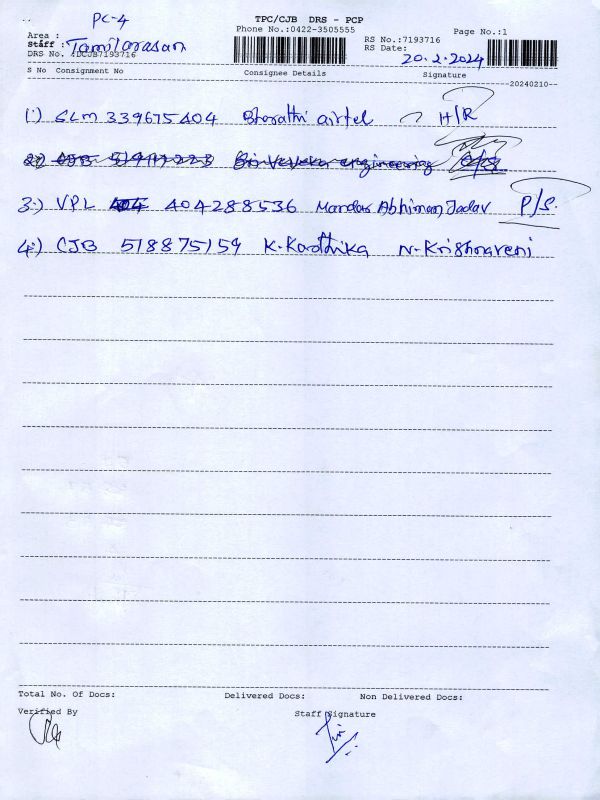 PC-4
TPC/CJB DRS - PCP
Phone No.:0422-3505555
Page No.:1
Area :
Staff : Tamilarasan
DRS No. :DCJB7193716
RS No.:7193716
RS Date: 20.2.2024
S No Consignment No Consignee Details Signature
20240210
1.) SLM 339675404 Bharathi airtel H/R
3.) VPL 404288536 Mandar Abhiman Jadav P/S.
4.) CJB 518875159 K. Karthika N. Krishnaveni
Total No. Of Docs: Delivered Docs: Non Delivered Docs:
Verified By Staff Signature